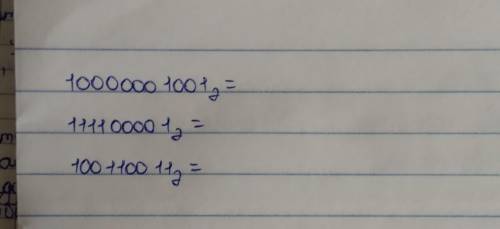 10000001001₂=
111100001₂ =
100110011₂=